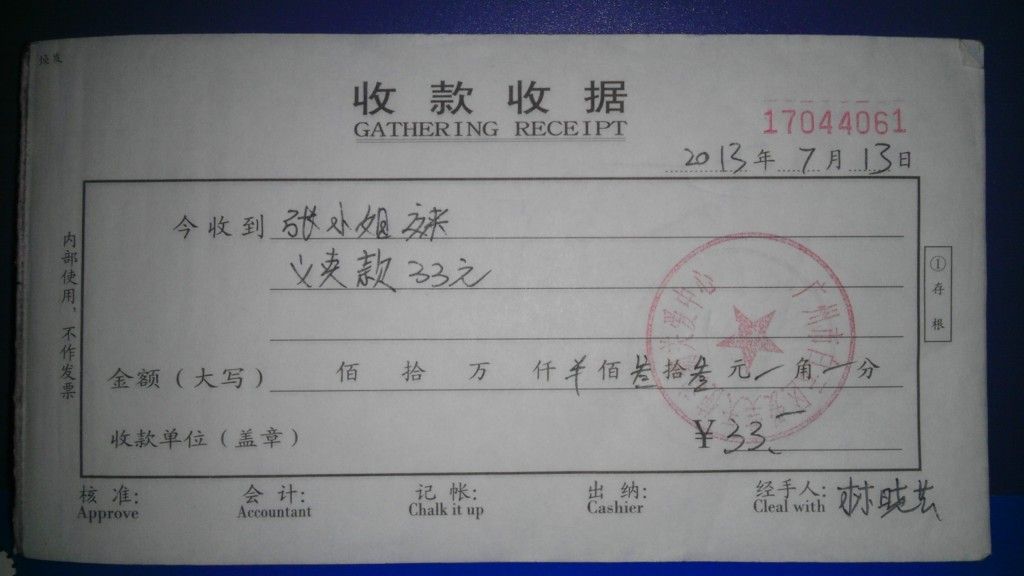 收款收据
GATHERING RECEIPT
17044061
2013年7月13日
今收到 张小姐
义卖款33元
金额（大写） 佰 拾 万 仟 佰叁拾叁元一角一分
收款单位（盖章） ¥33.一
内部使用，不作发票
①存根
核准： 会计： 记帐： 出纳： 经手人：
Approve Accountant Chalk it up Cashier Cleal with
广州市白云区
置中心